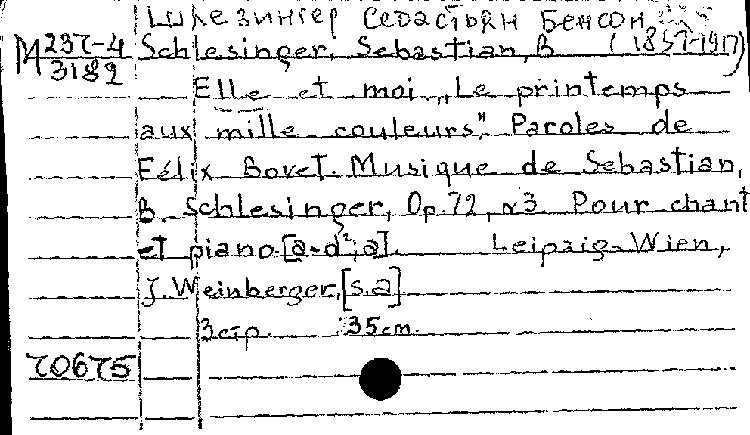 Шлезингер Себастьян Бенсон
М 237-4 Schlesinger, Sebastian, B (1837-1917)
3182
Elle et moi „Le printemps
aux mille couleurs". Paroles de
Félix Bovet. Musique de Sebastian,
B. Schlesinger, Op. 72, N3 Pour chant
et piano. [a-d²; a]. Leipzig-Wien,
J. Weinberger, [s.a]
3 стр. 35 cm.
70675